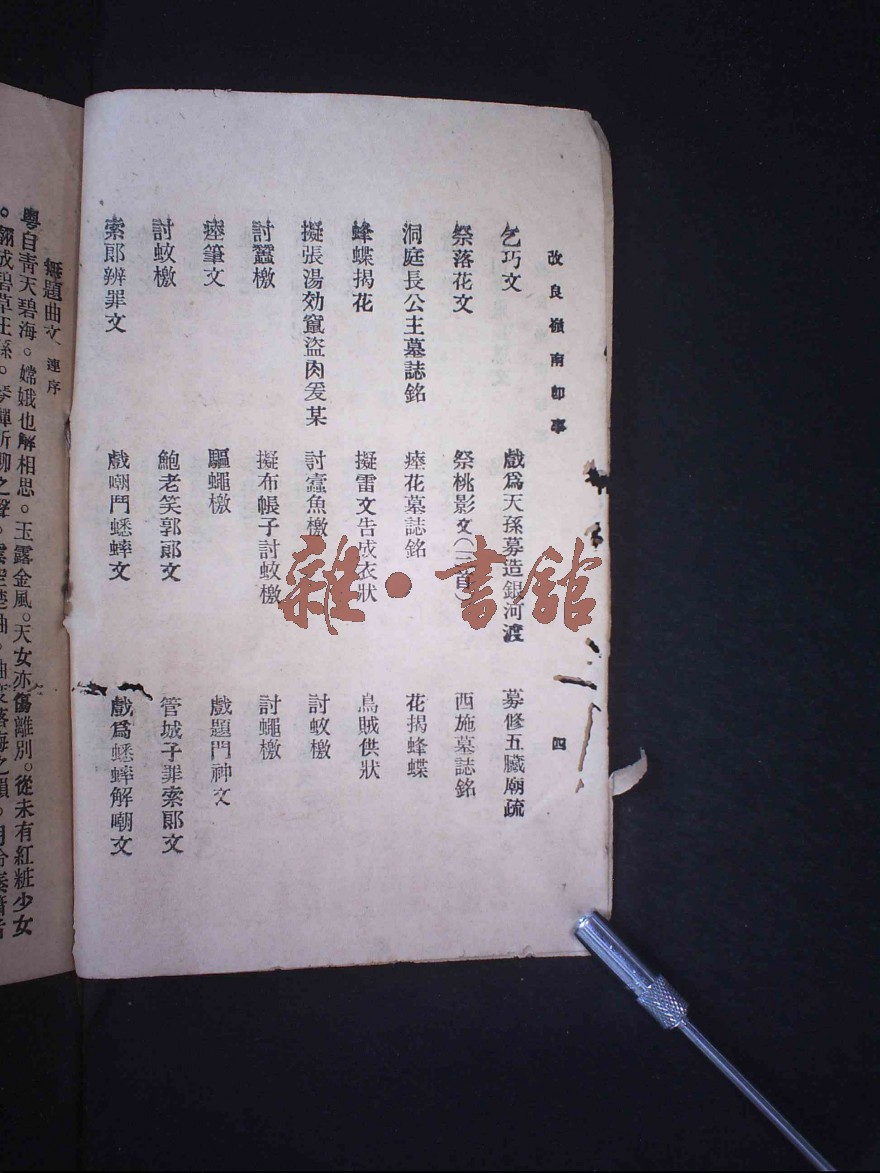 改良嶺南即事
四
乞巧文
戲爲天孫募造銀河渡
募修五臟廟疏
祭落花文
祭桃影文(二首)
西施墓誌銘
洞庭長公主墓誌銘
瘞花墓誌銘
花揭蜂蝶
蜂蝶揭花
擬雷文告成衣狀
烏賊供狀
擬張湯効鼠盜肉爰某
討蠹魚檄
討蚊檄
討蠶檄
擬布帳子討蚊檄
討蠅檄
瘞筆文
驅蠅檄
戲題門神文
討蚊檄
鮑老笑郭郞文
管城子罪索郞文
索郞辨罪文
戲嘲鬥蟋蟀文
戲爲蟋蟀解嘲文
無題曲文 連序
粤自靑天碧海。嫦娥也解相思。玉露金風。天女亦傷離別。從未有紅粧少女
雜·書館